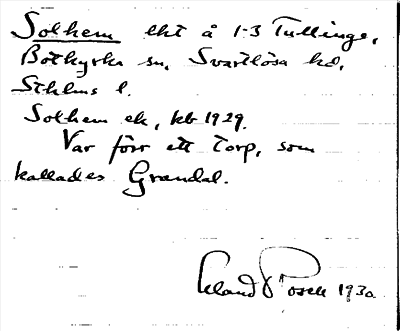 Solhem lht å 1-3 Tullinge,
Botkyrka sn, Svartlösa hd,
Sthlms l.
Solhem ek, kb 1929.
Var förr ett torp, som
kallades Grandal.
Rosell 1930